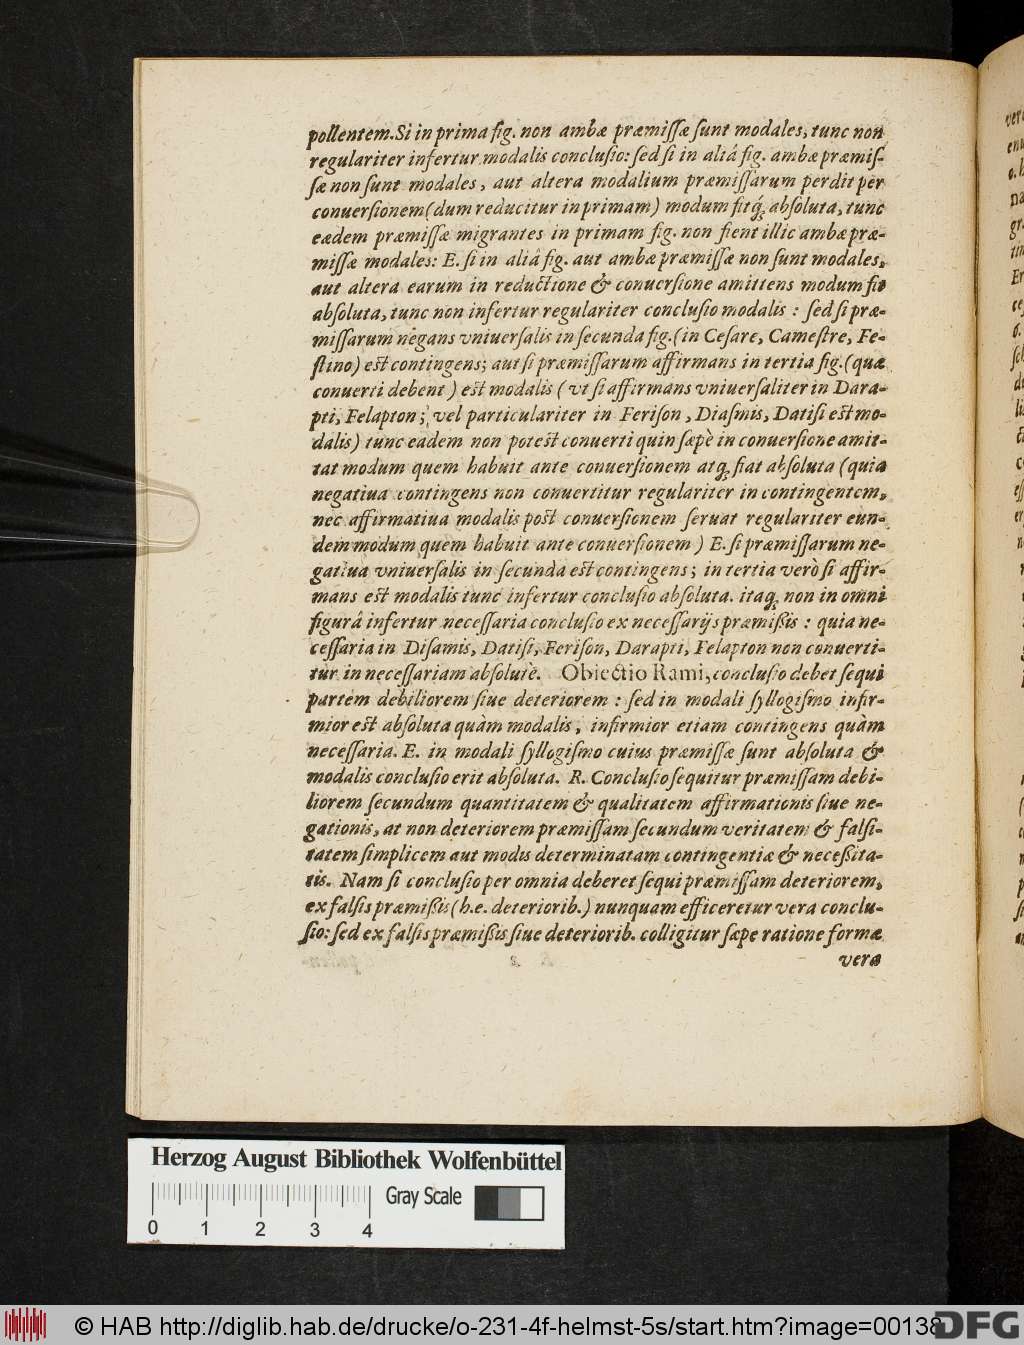 pollentem. Si in prima fig. non ambæ præmiſſæ ſunt modales, tunc non
regulariter infertur modalis concluſio: ſed ſi in aliâ fig. ambæ præmiſ-
ſæ non ſunt modales, aut altera modalium præmiſſarum perdit per
conuerſionem (dum reducitur in primam) modum fitq́; abſoluta, tunc
eædem præmiſſæ migrantes in primam fig. non fient illic ambæ præ-
miſſæ modales: E. ſi in aliâ fig. aut ambæ præmiſſæ non ſunt modales,
aut altera earum in reductione & conuerſione amittens modum fit
abſoluta, tunc non infertur regulariter concluſio modalis : ſed ſi præ-
miſſarum negans vniuerſalis in ſecunda fig. (in Ceſare, Cameſtre, Fe-
ſtino) eſt contingens; aut ſi præmiſſarum affirmans in tertia fig. (quæ
conuerti debent) eſt modalis (vt ſi affirmans vniuerſaliter in Dara-
pti, Felapton; vel particulariter in Feriſon, Diaſmis, Datiſi eſt mo-
dalis) tunc eadem non poteſt conuerti quin ſæpè in conuerſione amit-
tat modum quem habuit ante conuerſionem atq́; fiat abſoluta (quia
negatiua contingens non conuertitur regulariter in contingentem,
nec affirmatiua modalis poſt conuerſionem ſeruat regulariter eun-
dem modum quem habuit ante conuerſionem) E. ſi præmiſſarum ne-
gatiua vniuerſalis in ſecunda eſt contingens; in tertia verò ſi affir-
mans eſt modalis tunc infertur concluſio abſoluta. itaq́; non in omni
figurâ infertur neceſſaria concluſio ex neceſſarijs præmißis : quia ne-
ceſſaria in Diſamis, Datiſi, Feriſon, Darapti, Felapton non conuerti-
tur in neceſſariam abſolutè. Obiectio Rami, concluſio debet ſequi
partem debiliorem ſiue deteriorem : ſed in modali ſyllogiſmo infir-
mior eſt abſoluta quàm modalis, infirmior etiam contingens quàm
neceſſaria. E. in modali ſyllogiſmo cuius præmiſſæ ſunt abſoluta &
modalis concluſio erit abſoluta. R. Concluſio ſequitur præmiſſam debi-
liorem ſecundum quantitatem & qualitatem affirmationis ſiue ne-
gationis, at non deteriorem præmiſſam ſecundum veritatem & falſi-
tatem ſimplicem aut modis determinatam contingentiæ & neceßita-
tis. Nam ſi concluſio per omnia deberet ſequi præmiſſam deteriorem,
ex falſis præmißis (h.e. deteriorib.) nunquam efficeretur vera conclu-
ſio: ſed ex falſis præmißis ſiue deteriorib. colligitur ſæpe ratione formæ
vera
Herzog August Bibliothek Wolfenbüttel
Gray Scale
0 1 2 3 4
© HAB http://diglib.hab.de/drucke/o-231-4f-helmst-5s/start.htm?image=00138
DFG